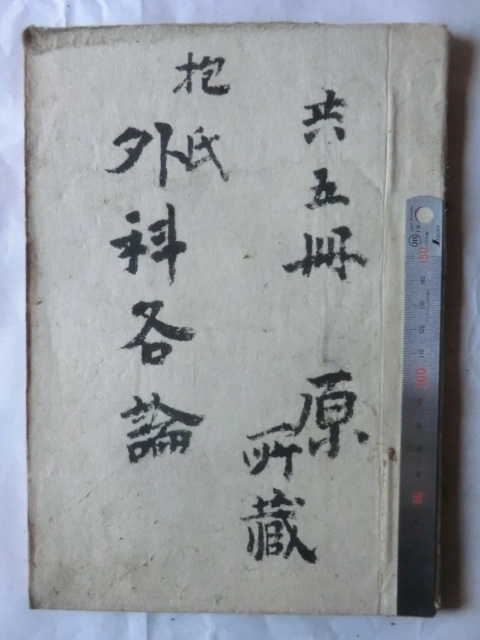 共五冊 原所蔵
抱氏
外科各論
150
100
50